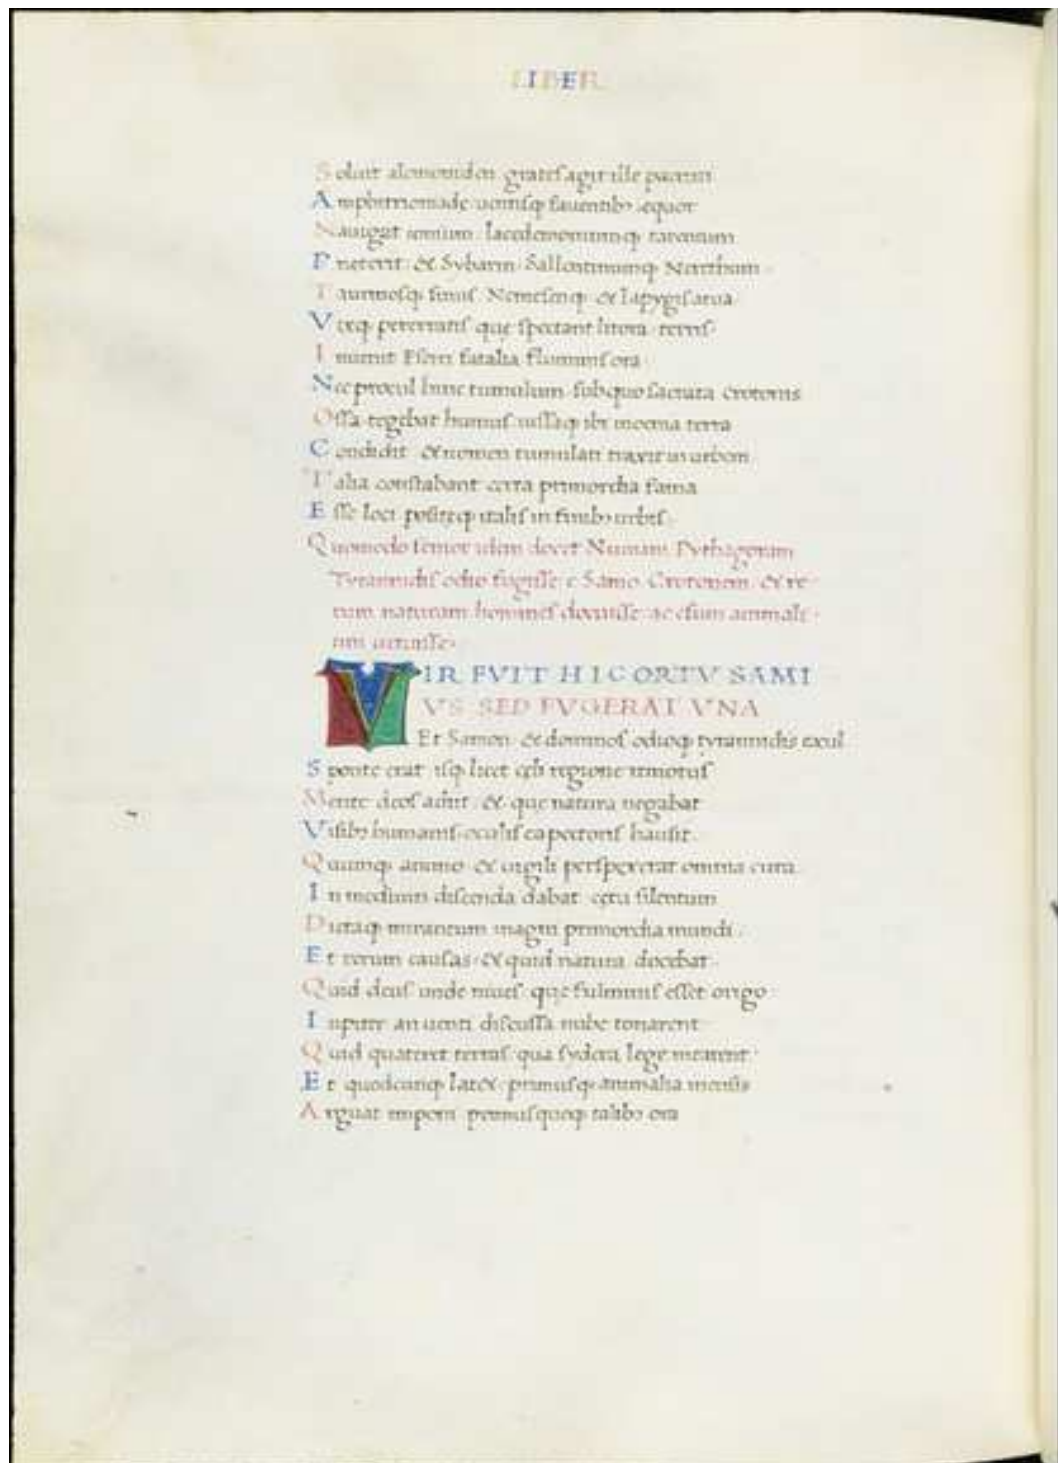 LIBER
Soluit alemoniden grates agit ille parenti
Amphitrioniade uentisq fauentibꝫ equor
Nauigat ionium lacedemoniumq tarentum
Preterit & Sybarin Sallentinumq Neethum
Taurinosq sinus Nemesenq & Iapygis arua
Vixq pererratis quę spectant litora terris
Inuenit Eseri fatalia fluminis ora
Nec procul hinc tumulum sub quo sacrata crotonis
Ossa tegebat humus iussaq ibi moenia terra
Condidit & nomen tumulati traxit in urbem
Talia constabant certa primordia fama
Esse loci positeq italis in finibꝫ urbis
Quomodo senior idem docet Numam Pythagoram
Tyrannidis odio fugisse e Samo Crotonem & re
rum naturam homines docuisse ac esum animali
um uetuisse
VIR FVIT HIC ORTV SAMI
VS SED FVGERAT VNA
Et Samon & dominos odioq tyrannidis exul
Sponte erat isq licet cęli regione remotus
Mente deos adiit & que natura negabat
Visibꝫ humanis oculis ea pectoris hausit
Quumq animo & uigili perspexerat omnia cura
In medium discenda dabat cętu silentum
Dictaq mirantum magni primordia mundi
Et rerum causas & quid natura docebat
Quid deus unde niues que fulminis esset origo
Iupiter an uenti discussa nube tonarent
Quid quateret terras qua sydera lege mearent
Et quodcunq latet primusq animalia mensis
Arguit imponi primus quoq talibꝫ ora